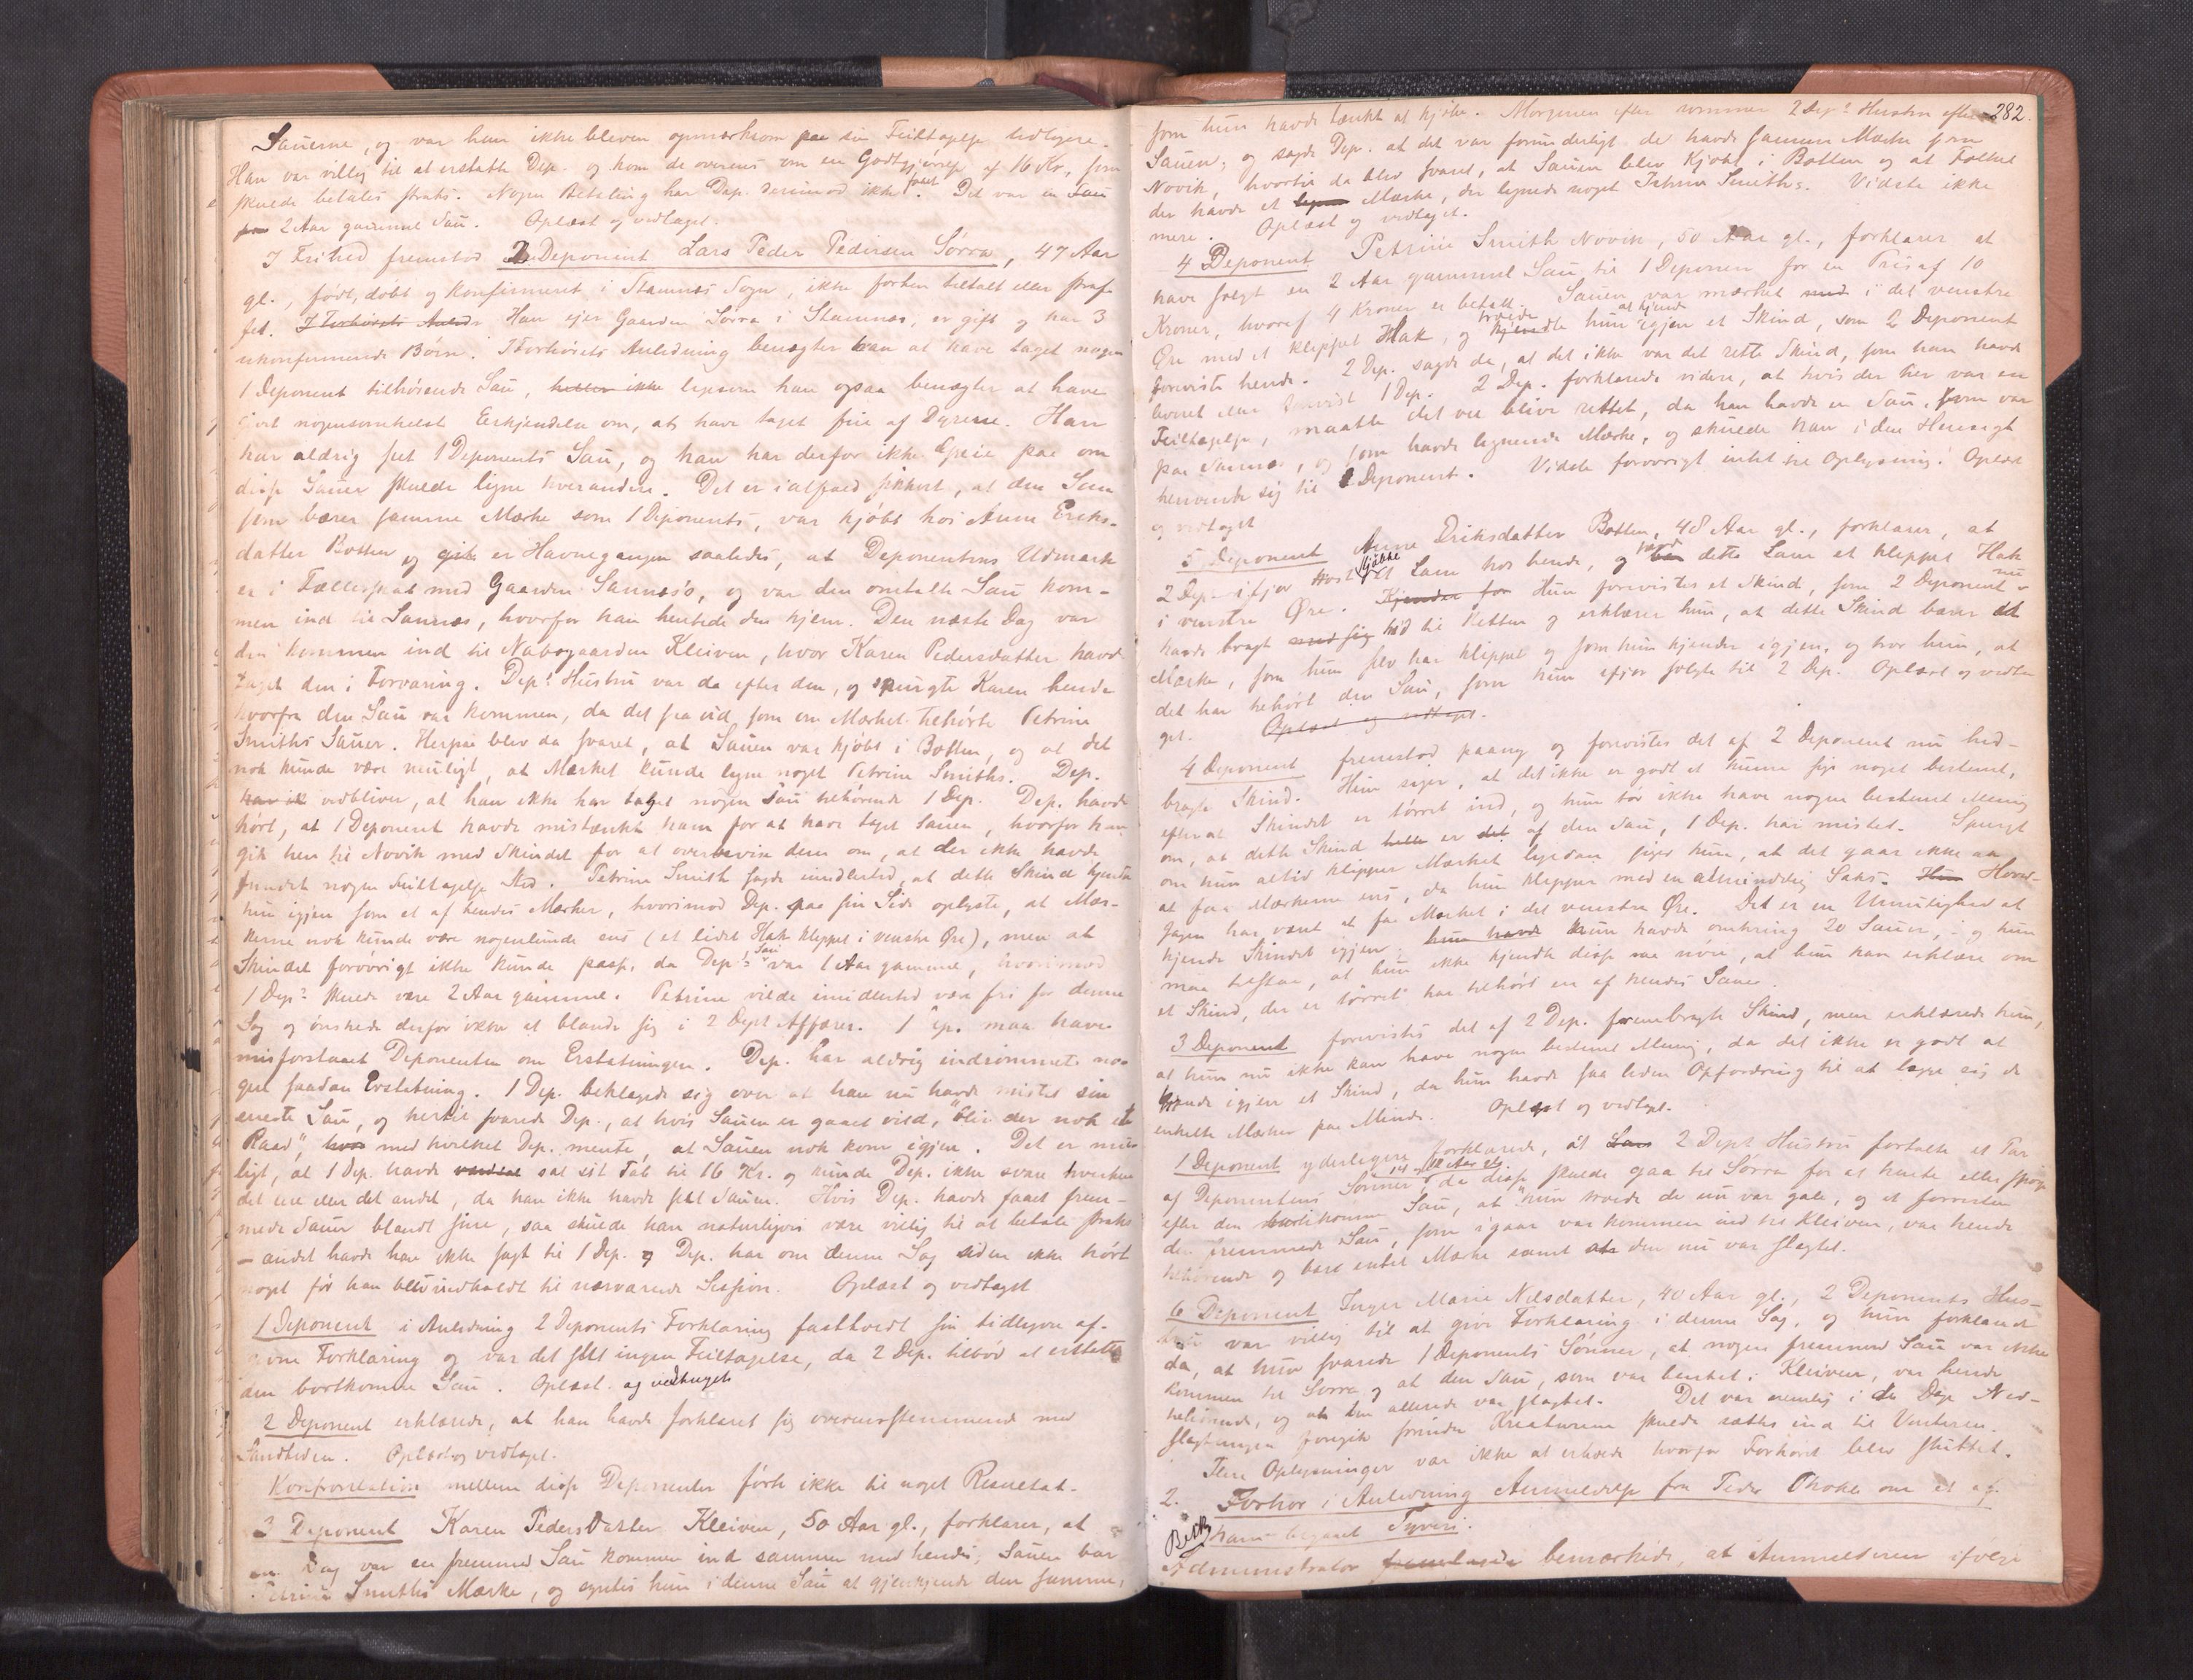 Sauerne, og var han ikke bleven opmærksom paa sin Feiltagelse tidligere.
Han var villig til at erstatte Dep. og kom de overens om en Godtgjørelse af 16 Kr, som
skulde betales straks. Nogen Betaling har Dep. derimod ikke faaet. Det var en Sau
paa 2 Aar gammel Sau. Oplæst og vedtaget.
I Frihed fremstod 2 Deponent Lars Peder Pedersen Sørra, 47 Aar
gl., født, døbt og konfirmeret i Stamnes Sogn, ikke forhen tiltalt eller straf-
fet. I Forhørets Anled Han ejer Gaarden Sørra i Stamnes, er gift og har 3
ukonfirmerede Børn. I Forhørets Anledning benægter han at have taget nogen
1 Deponent tilhørende Sau, heller ikke ligesom han ogsaa benægter at have
gjort nogensomhelst Erkjendelse om, at have taget feil af Dyrene. Han
har aldrig set 1 Deponents Sau, og han har derfor ikke Greie paa om
disse Sauer skulde ligne hverandre. Det er ialfald sikkert, at den Sau
som bærer samme Mærke som 1 Deponents, var kjøbt hos Anne Eriks-
datter Botten og gik er Havnegangen saaledes, at Deponentens Udmark
er i Fællesskab med Gaarden Sannes's, og var den omtalte Sau kom-
men ind til Sannes, hvorfor han hentede den hjem. Den næste Dag var
den kommen ind til Nabogaarden Kleiven, hvor Karen Pedersdatter havde
taget den i Forvaring. Dep.s Hustru var da efter den, og spurgte Karen hende
hvorfra den Sau var kommen, da det saa ud som om Mærket tilhørte Petrine
Smiths Sauer. Herpaa blev da svaret, at Sauen var kjøbt i Botten, og at det
nok kunde være muligt, at Mærket kunde ligne noget Petrine Smiths. Dep.
har ik vedbliver, at han ikke har taget nogen Sau tilhørende 1 Dep. Dep. havde
hørt, at 1 Deponent havde mistænkt ham for at have taget Sauen, hvorfor han
gik hen til Novik med Skindet for at overbevise dem om, at der ikke havde
fundet nogen Feiltagelse Sted. Petrine Smith sagde imidlertid, at dette Skind kjendte
hun igjen som et af hendes Mærker, hvorimod Dep. paa sin Side oplyste, at Mær-
kerne nok kunde være nogenlunde ens (et lidet Hak klippet i venstre Øre), men at
Skindet forøvrigt ikke kunde passe, da Dep.s Sau var 1 Aar gammel, hvorimod
1 Dep.s skulde være 2 Aar gammel. Petrine vilde imidlertid være fri for denne
Sag og ønskede derfor ikke at blande sig i 2 Deps Affærer. 1 Dep. maa have
misforstaaet Deponenten om Erstatningen. Dep. har aldrig indrømmet no-
gen saadan Erstatning. 1 Dep. beklagede sig over at han nu havde mistet sin
eneste Sau, og hertil svarede Dep., at hvis Sauen er gaaet vild, "blir der nok et
Raad", hvor med hvilket Dep. mente, at Sauen nok kom igjen. Det er mu-
ligt, at 1 Dep. havde sat sit Tab til 16 Kr. og kunde Dep. ikke svare hverken
det ene eller det andet, da han ikke havde set Sauen. Hvis Dep. havde faaet frem-
mede Sauer blandt sine, saa skulde han naturligvis være villig til at betale straks
– andet havde han ikke sagt til 1 Dep. og Dep. har om denne Sag siden ikke hørt
noget før han blev indkaldt til nærværende Session. Oplæst og vedtaget
1 Deponent i Anledning 2 Deponents Forklaring fastholdt sin tidligere af-
givne Forklaring og var det slet ingen Feiltagelse, da 2 Dep. tilbød at erstatte
den bortkomne Sau. Oplæst. og vedtaget
2 Deponent erklærede, at han havde forklaret sig overensstemmende med
Sandheden. Oplæst og vedtaget.
Konfrontation mellem disse Deponenter førte ikke til noget Resultat.
3 Deponent Karen Pedersdatter Kleiven, 50 Aar gl., forklarer, at
en Dag var en fremmed Sau kommen ind sammen med hendes, Sauen bar
Petrine Smiths Mærke, og syntes hun i denne Sau at gjenkjende den samme,
282.
som hun havde tænkt at kjøbe. Morgenen efter kommer 2 Dep.s Hustru efter
Sauen, og sagde Dep. at det var forunderligt de havde samme Mærke som
Novik, hvortil da blev svaret, at Sauen blev kjøbt i Botten og at Folket
der havde et Mærke, der lignede noget Petrine Smiths. Vidste ikke
mere. Oplæst og vedtaget.
4 Deponent Petrine Smith Novik, 50 Aar gl., forklarer at
have solgt en 2 Aar gammel Sau til 1 Deponent for en Pris af 10
Kroner, hvoraf 4 Kroner er betalt. Sauen var mærket med i det venstre
Øre med et klippet Hak, og troede hun at kjende igjen et Skind, som 2 Deponent
foreviste hende. 2 Dep. sagde da, at det ikke var det rette Skind, som han havde
lovet eller forevist 1 Dep. 2 Dep. forklarede videre, at hvis der her var en
Feiltagelse, maatte det vel blive rettet, da han havde en Sau, som var
paa Sannes, og som havde lignende Mærke, og skulde han i den Hensigt
henvende sig til 1 Deponent. Vidste forøvrigt intet til Oplysning. Oplæst
og vedtaget
5 Deponent Anne Eriksdatter Botten, 48 Aar gl., forklarer, at
2 Dep. ifjor Høst kjøbte et Lam hos hende, og havde dette Lam et klippet Hak
i venstre Øre. Kjender for Hun forevistes et Skind, som 2 Deponent nu
havde bragt med sig hid til Retten og erklærer hun, at dette Skind bærer det
Mærke, som hun selv har klippet og som hun kjender igjen, og tror hun, at
det har tilhørt den Sau, som hun ifjor solgte til 2 Dep. Oplæst og vedta-
get. Oplæst og vedtaget.
4 Deponent fremstod paany og forevistes det af 2 Deponent nu hid-
bragte Skind. Hun siger, at det ikke er godt at kunne sige noget bestemt,
efterat Skindet er tørret ind, og hun tør ikke have nogen bestemt Mening
om, at dette Skind er det af den Sau, 1 Dep. har mistet. Spurgt
om hun altid klipper Mærket ligedan siger hun, at det gaar ikke an
at faa Mærkerne ens, da hun klipper med en almindelig Saks. Hun Hoved-
sagen har været at faa Mærket i det venstre Øre. Det er en Umulighed at
kjende Skindet igjen. hun havde hun havde omkring 20 Sauer, – og hun
maa tilstaa, at hun ikke kjendte disse saa nøie, at hun kan erklære om
et Skind, der er tørret har tilhørt en af hendes Sauer.
3 Deponent forevistes det af 2 Dep. frembragte Skind, men erklærede hun,
at hun nu ikke kan have nogen bestemt Mening, da det ikke er godt at
kjende igjen et Skind, da hun havde saa liden Opfordring til at lægge sig de
enkelte Mærker paa Minde. Oplæst og vedtaget.
1 Deponent yderligere forklarede, at Lars 2 Dept Hustru fortalte et Par
af Deponentens Sønner, 14 – 12 Aar gl. da disse skulde gaa til Sørra for at hente eller spørge
efter den bortkomne Sau, at "hun troede de nu var gale, og at forresten
den fremmede Sau, som igaar var kommen ind til Kleiven, var hende
tilhørende og bare enkel Mærke samt at den nu var slagtet.
6 Deponent Inger Marie Nilsdatter, 40 Aar gl., 2 Deponents Hus-
tru var villig til at give Forklaring i denne Sag, og hun forklarer
da, at hun svarede 1 Deponents Sønner, at nogen fremmed Sau var ikke
kommen til Sørra og at den Sau, som var hentet i Kleiven, var hende
tilhørende, og at den allerede var slagtet. Det var nemlig i de Dage Ned-
slagtningen foregik førinden Kreaturerne skulde sættes ind til Vinteren.
Flere Oplysninger var ikke at erholde hvorfor Forhøret blev sluttet.
2. Forhør i Anledning Anmeldelse fra Peder Thoke om et af
ham begaaet Tyveri.
Administrator fremlagde bemærkede, at Anmelderen ifølge